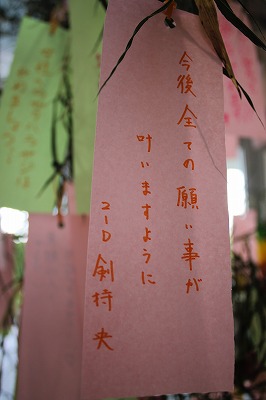 今後全ての願い事が
叶いますように
2-D 剣持 央